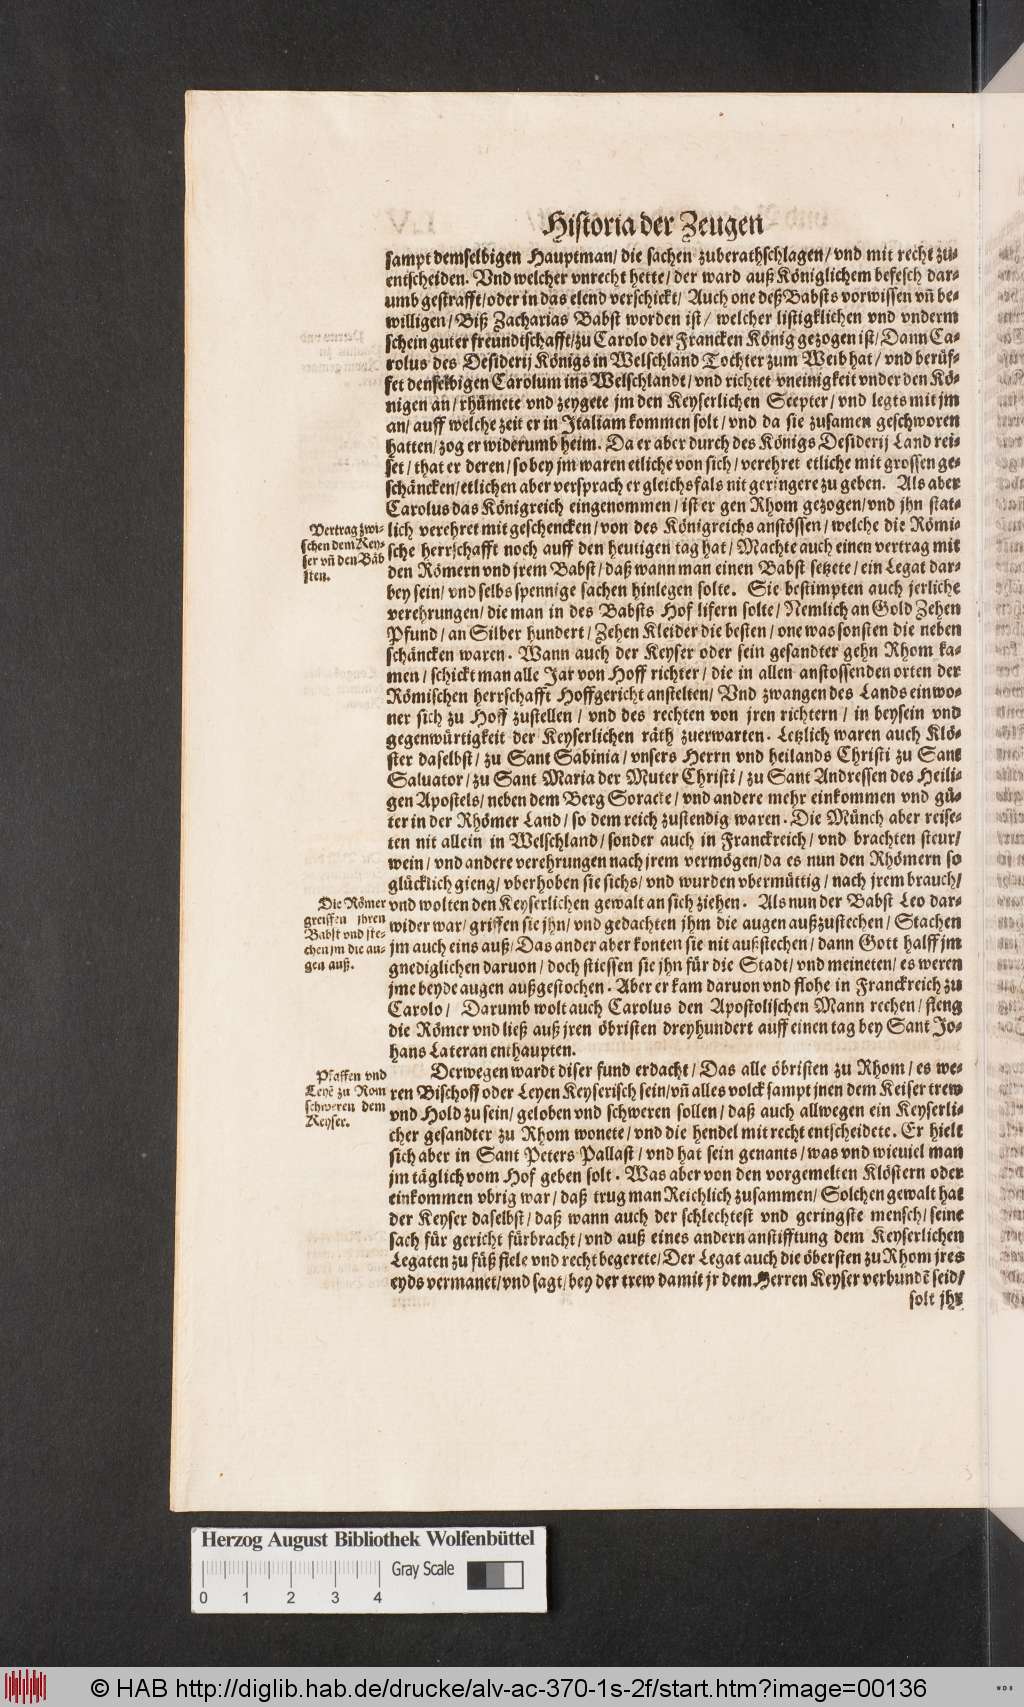 Historia der Zeugen
sampt demselbigen Hauptman/ die sachen zuberathschlagen/ vnd mit recht zu⸗
entscheiden. Vnd welcher vnrecht hette/ der ward auß Königlichem befelch dar⸗
umb gestrafft/ oder in das elend verschickt/ Auch one deß Babsts vorwissen vñ be⸗
willigen/ Biß Zacharias Babst worden ist/ welcher listigklichen vnd vnderm
schein guter freündtschafft/ zu Carolo der Francken König gezogen ist/ Dann Ca⸗
rolus des Desiderij Königs in Welschland Tochter zum Weib hat/ vnd berüf⸗
fet denselbigen Carolum ins Welschlandt/ vnd richtet vneinigkeit vnder den Kö⸗
nigen an/ rhümete vnd zeygete jm den Keyserlichen Scepter/ vnd legts mit jm
an/ auff welche zeit er in Italiam kommen solt/ vnd da sie zusamen geschworen
hatten/ zog er widerumb heim. Da er aber durch des Königs Desiderij Land rei⸗
set/ that er deren/ so bey jm waren etliche von sich/ verehret etliche mit grossen ge⸗
schäncken/ etlichen aber versprach er gleichsfals nit geringere zu geben. Als aber
Carolus das Königreich eingenommen/ ist er gen Rhom gezogen/ vnd jhn stat⸗
lich verehret mit geschencken/ von des Königreichs anstössen/ welche die Römi⸗
sche herrschafft noch auff den heutigen tag hat/ Machte auch einen vertrag mit
den Römern vnd jrem Babst/ daß wann man einen Babst setzete/ ein Legat dar⸗
bey sein/ vnd selbs spennige sachen hinlegen solte. Sie bestimpten auch jerliche
verehrungen/ die man in des Babsts Hof lifern solte/ Nemlich an Gold Zehen
Pfund/ an Silber hundert/ Zehen Kleider die besten/ one was sonsten die neben
schäncken waren. Wann auch der Keyser oder sein gesandter gehn Rhom ka⸗
men/ schickt man alle Jar von Hoff richter/ die in allen anstossenden orten der
Römischen herrschafft Hoffgericht anstelten/ Vnd zwangen des Lands einwo⸗
ner sich zu Hoff zustellen/ vnd des rechten von jren richtern/ in beysein vnd
gegenwürtigkeit der Keyserlichen räth zuerwarten. Letzlich waren auch Klö⸗
ster daselbst/ zu Sant Sabinia/ vnsers Herrn vnd heilands Christi zu Sant
Saluator/ zu Sant Maria der Muter Christi/ zu Sant Andressen des Heili⸗
gen Apostels/ neben dem Berg Soracte/ vnd andere mehr einkommen vnd gü⸗
ter in der Rhömer Land/ so dem reich zustendig waren. Die Münch aber reise⸗
ten nit allein in Welschland/ sonder auch in Franckreich/ vnd brachten steur/
wein/ vnd andere verehrungen nach jrem vermögen/ da es nun den Rhömern so
glücklich gieng/ vberhoben sie sichs/ vnd wurden vbermüttig/ nach jrem brauch/
vnd wolten den Keyserlichen gewalt an sich ziehen. Als nun der Babst Leo dar⸗
wider war/ griffen sie jhn/ vnd gedachten jhm die augen außzustechen/ Stachen
jm auch eins auß/ Das ander aber konten sie nit außstechen/ dann Gott halff jm
gnediglichen daruon/ doch stiessen sie jhn für die Stadt/ vnd meineten/ es weren
jme beyde augen außgestochen. Aber er kam daruon vnd flohe in Franckreich zu
Carolo/ Darumb wolt auch Carolus den Apostolischen Mann rechen/ fieng
die Römer vnd ließ auß jren öbristen dreyhundert auff einen tag bey Sant Jo⸗
hans Lateran enthaupten.
Derwegen wardt diser fund erdacht/ Das alle öbristen zu Rhom/ es we⸗
ren Bischoff oder Leyen Keyserisch sein/ vñ alles volck sampt jnen dem Keiser trew
vnd Hold zu sein/ geloben vnd schweren sollen/ daß auch allwegen ein Keyserli⸗
cher gesandter zu Rhom wonete/ vnd die hendel mit recht entscheidete. Er hielt
sich aber in Sant Peters Pallast/ vnd hat sein genants/ was vnd wieuiel man
jm täglich vom Hof geben solt. Was aber von den vorgemelten Klöstern oder
einkommen vbrig war/ daß trug man Reichlich zusammen/ Solchen gewalt hat
der Keyser daselbst/ daß wann auch der schlechtest vnd geringste mensch/ seine
sach für gericht fürbracht/ vnd auß eines andern anstifftung dem Keyserlichen
Legaten zu füß fiele vnd recht begerete/ Der Legat auch die öbersten zu Rhom jres
eyds vermanet/ vnd sagt/ bey der trew damit jr dem Herren Keyser verbundē seid/
solt jhr
Vertrag zwi⸗
schen dem Key⸗
ser vñ den Bäb
sten.
Die Römer
greiffen jhren
Babst vnd ste⸗
chen jm die au⸗
gen auß.
Pfaffen vnd
Leyē zu Rom
schweren dem
Keyser.
Herzog August Bibliothek Wolfenbüttel
Gray Scale
0 1 2 3 4
© HAB http://diglib.hab.de/drucke/alv-ac-370-1s-2f/start.htm?image=00136